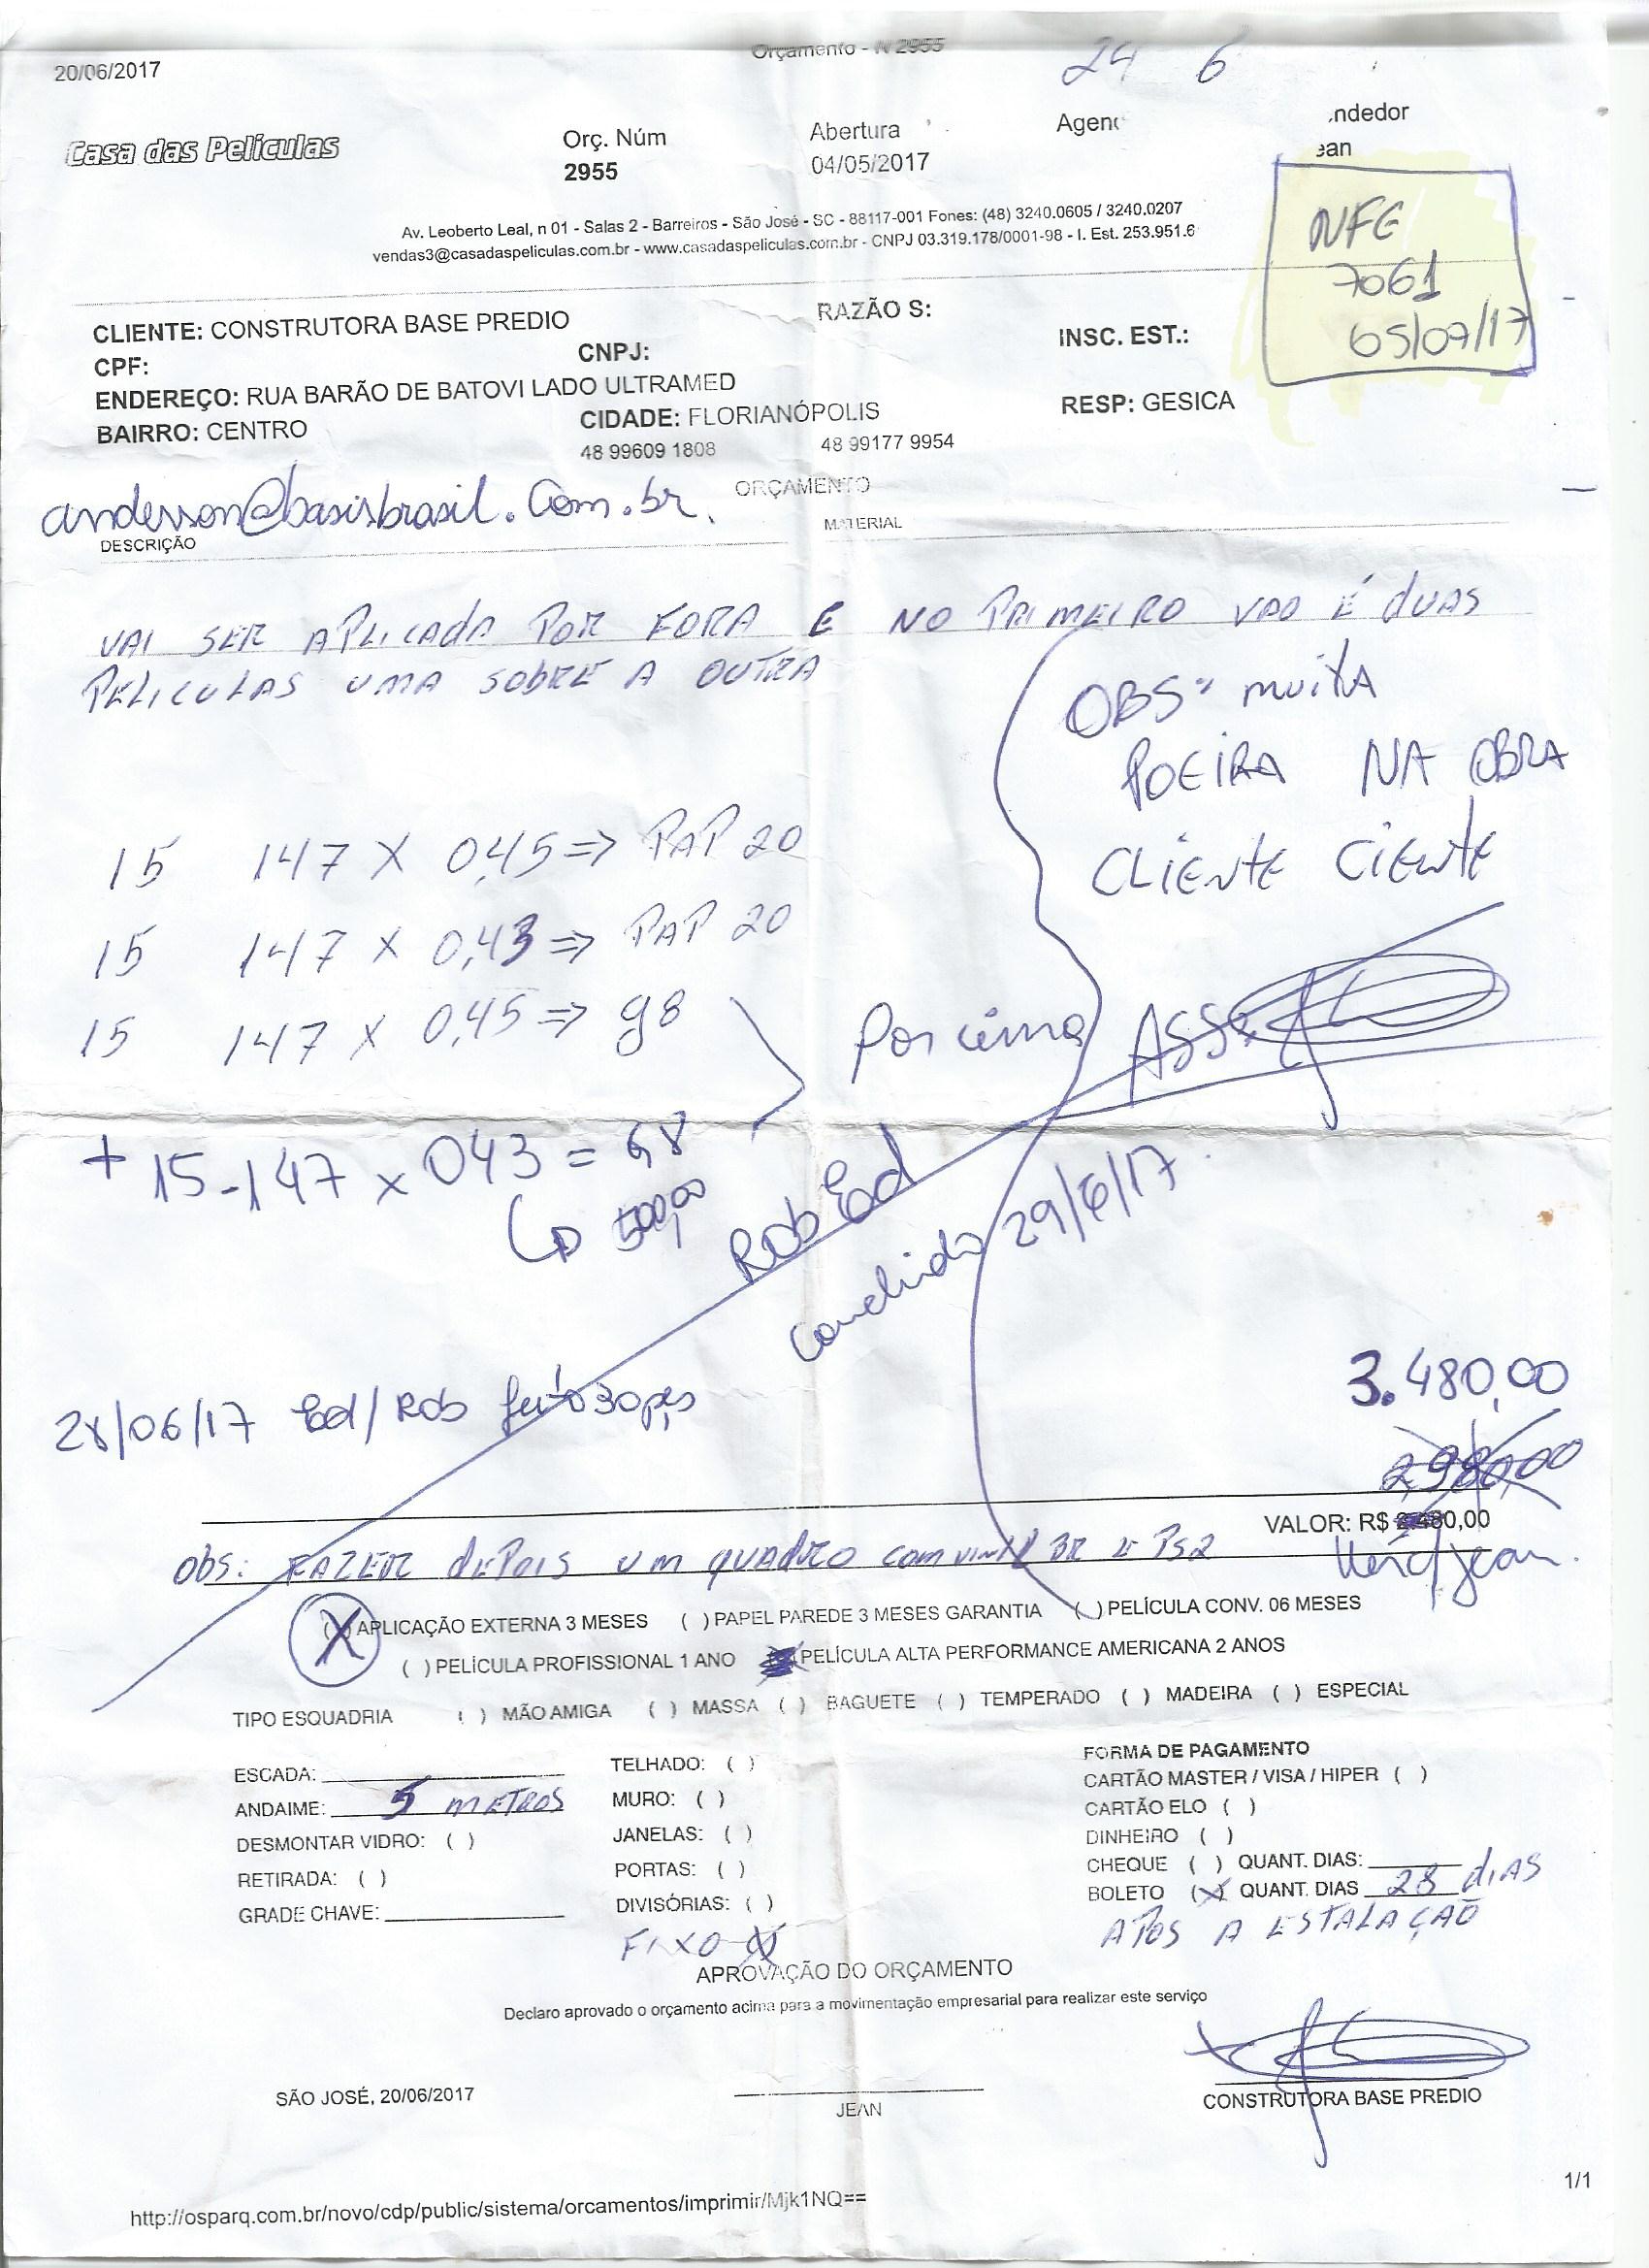 20/06/2017
Orçamento - N 2955
24 6
Casa das Películas
Orç. Núm
2955
Abertura
04/05/2017
Agen
ndedor
ean
NFE
7061
05/07/17
Av. Leoberto Leal, n 01 - Salas 2 - Barreiros - São José - SC - 88117-001 Fones: (48) 3240.0605 / 3240.0207
vendas3@casadaspeliculas.com.br - www.casadaspeliculas.com.br - CNPJ 03.319.178/0001-98 - I. Est. 253.951.6
CLIENTE: CONSTRUTORA BASE PREDIO
RAZÃO S:
CPF:
CNPJ:
INSC. EST.:
ENDEREÇO: RUA BARÃO DE BATOVI LADO ULTRAMED
BAIRRO: CENTRO
CIDADE: FLORIANÓPOLIS
RESP: GESICA
48 99609 1808
48 99177 9954
anderson@basisbrasil.com.br.
ORÇAMENTO
DESCRIÇÃO
MATERIAL
VAI SER APLICADA POR FORA E NO PRIMEIRO VAO É DUAS
PELICULAS UMA SOBRE A OUTRA
OBS: muitA
POEIRA NA OBRA
CLIENTE CIENTE
15 147 X 0,45 => PAP 20
15 147 X 0,43 => PAP 20
15 147 X 0,45 => g8
Por cima
ASS
+ 15 - 147 x 043 = G8
500,00
Rob Ed
Concluido 29/6/17
28/06/17 Ed/Rob feito 30 pçs
3.480,00
2,980,00
VALOR: R$ 2.480,00
Obs: FAZER DEPOIS UM QUADRO COM VINIL BR E PS2
Jean.
(X) APLICAÇÃO EXTERNA 3 MESES ( ) PAPEL PAREDE 3 MESES GARANTIA ( ) PELÍCULA CONV. 06 MESES
( ) PELÍCULA PROFISSIONAL 1 ANO PELÍCULA ALTA PERFORMANCE AMERICANA 2 ANOS
TIPO ESQUADRIA ( ) MÃO AMIGA ( ) MASSA ( ) BAGUETE ( ) TEMPERADO ( ) MADEIRA ( ) ESPECIAL
ESCADA:
ANDAIME: 5 METROS
DESMONTAR VIDRO: ( )
RETIRADA: ( )
GRADE CHAVE:
TELHADO: ( )
MURO: ( )
JANELAS: ( )
PORTAS: ( )
DIVISÓRIAS: ( )
FIXO (X)
FORMA DE PAGAMENTO
CARTÃO MASTER / VISA / HIPER ( )
CARTÃO ELO ( )
DINHEIRO ( )
CHEQUE ( ) QUANT. DIAS:
BOLETO (X) QUANT. DIAS 28 DIAS
APOS A ESTALAÇÃO
APROVAÇÃO DO ORÇAMENTO
Declaro aprovado o orçamento acima para a movimentação empresarial para realizar este serviço
SÃO JOSÉ, 20/06/2017
JEAN
CONSTRUTORA BASE PREDIO
1/1
http://osparq.com.br/novo/cdp/public/sistema/orcamentos/imprimir/Mjk1NQ==